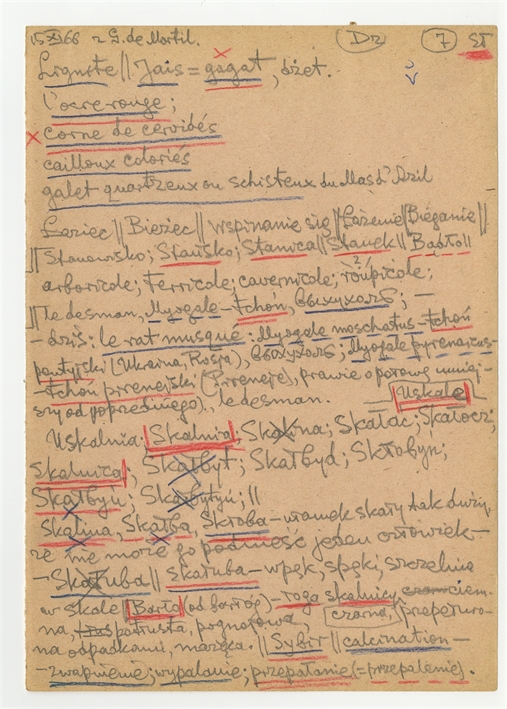 15 XI 66 z G. de Mortil. Dz 7
Lignite || Jais = gagat, dżet.
l'ocre rouge;
corne de cervidés
cailloux coloriés
galet quartzeux ou schisteux du Mas d'Azil
Łaziec || Bieżec || wspinanie się || Łażenie || Bieganie ||
|| Stanowisko; Stańsko; Stanica || Stanek || Barło ||
arboricole; terricole; cavernicole; rupicole;
|| le desman, Myogale – tchoń, Выхухоль; –
– dziś: le rat musqué: Myogale moschatus – tchoń
pontyjski (Ukraina, Rosja), Выхухоль; Myogale pyrenaicus
– tchoń pirenejski (Pireneje), prawie o połowę mniej-
szy od poprzedniego), le desman. Uskale
Uskalnia; Skalnia; Skalina; Skałac; Skałocz;
Skalnica; Skałbyt; Skałbyd; Skłobyn;
Skałbyń; Skałbytyń; ||
Skalina, Skałba, Skłoba – ułamek skały tak duży,
że nie może go podnieść jeden człowiek –
– Skałuba || skałuba – wpęk, spęki, szczelina
w skale || Barło (od barłóg) – rogo skalnicy ciem-
na, pusta, pognojowa, czarna, przepełnio-
na odpadkami, mazista. || Sybir || calcination –
– zwapnienie; wypalanie; przepałanie (= przepalenie).